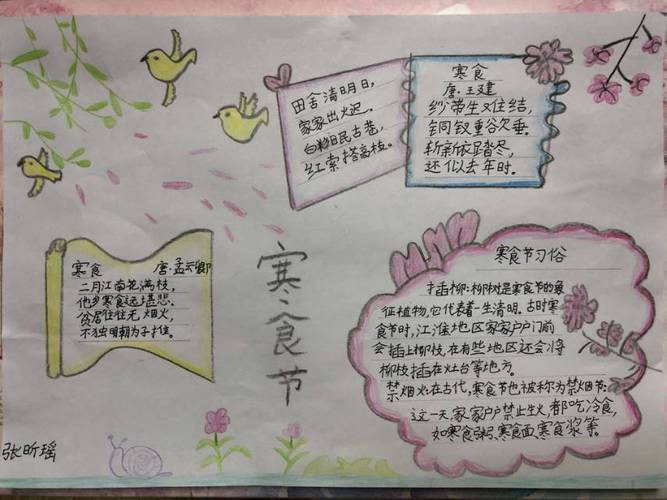 田舍清明日,
家家出火迟。
白粉眠古巷,
红索搭高枝。
寒食
唐·王建
纱带生双佳结,
铜钗重谷欠垂。
斩新衣踏尽,
还似去年时。
寒食 唐·孟云卿
二月江南花满枝,
他乡寒食远堪悲。
贫居往往无烟火,
不独明朝为子推。
寒食节
寒食节习俗
插柳:柳树是寒食节的象
征植物,它代表着一生清明。古时寒
食节时,江淮地区家家户户门前
会插上柳枝,在有些地区还会将
柳枝插在灶台等地方。
禁烟火在古代,寒食节也被称为禁烟节:
这一天,家家户户禁止生火,都吃冷食,
如寒食粥、寒食面、寒食浆等。
张昕瑶